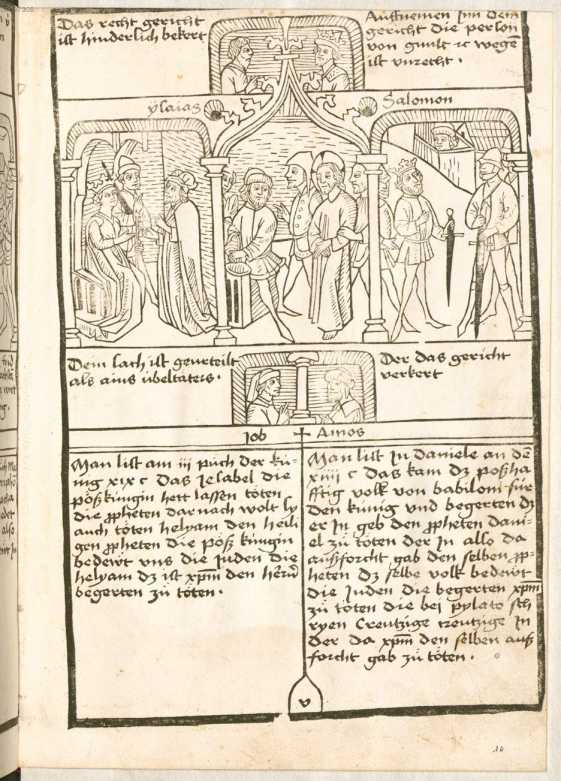 Das recht gericht
ist hinderlich bekert
Auffnemen Inn dem
gericht die person
von gunst rc wege
ist vnrecht .
ysaias
Salomon
Dein sach ist geurteilt
als ains übeltäters .
Der das gericht
verkert
Job
Amos
Man list am iii půch der kü-
nig xix c das Jesabel die
pöß künigin hett lassen töten
die ppheten darnach wolt sy
auch töten helyam den heili
gen ppheten die pöß künigin
bedewt vns die iuden die
helyam dz ist xpm den herñ
begerten zů töten .
Man list In daniele an dē
xiiii c das kam dz poßha
fftig volk von babiloni für
den künig vnd begerten dz
er In geb den ppheten dani-
el zů töten der In also da
außforcht gab den selben pp-
heten dz selbe volk bedewt
die iuden die begerten xpm
zů töten die bei pylato sch
ryen Creutzige creutzige In
der da xpm den selben auß
forcht gab zů töten .
v
10